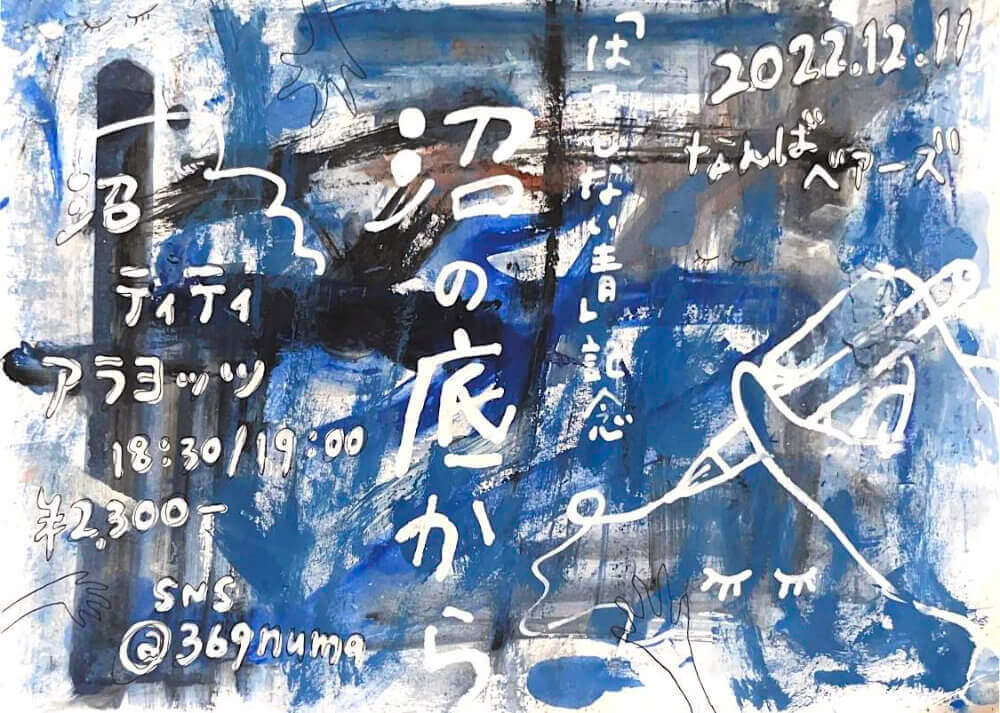 2022.12.11
なんば
ベアーズ
「はてしない青」記念
沼の底から
沼
ティティ
アラヨッツ
18:30/19:00
¥2,300-
SNS
@369numa